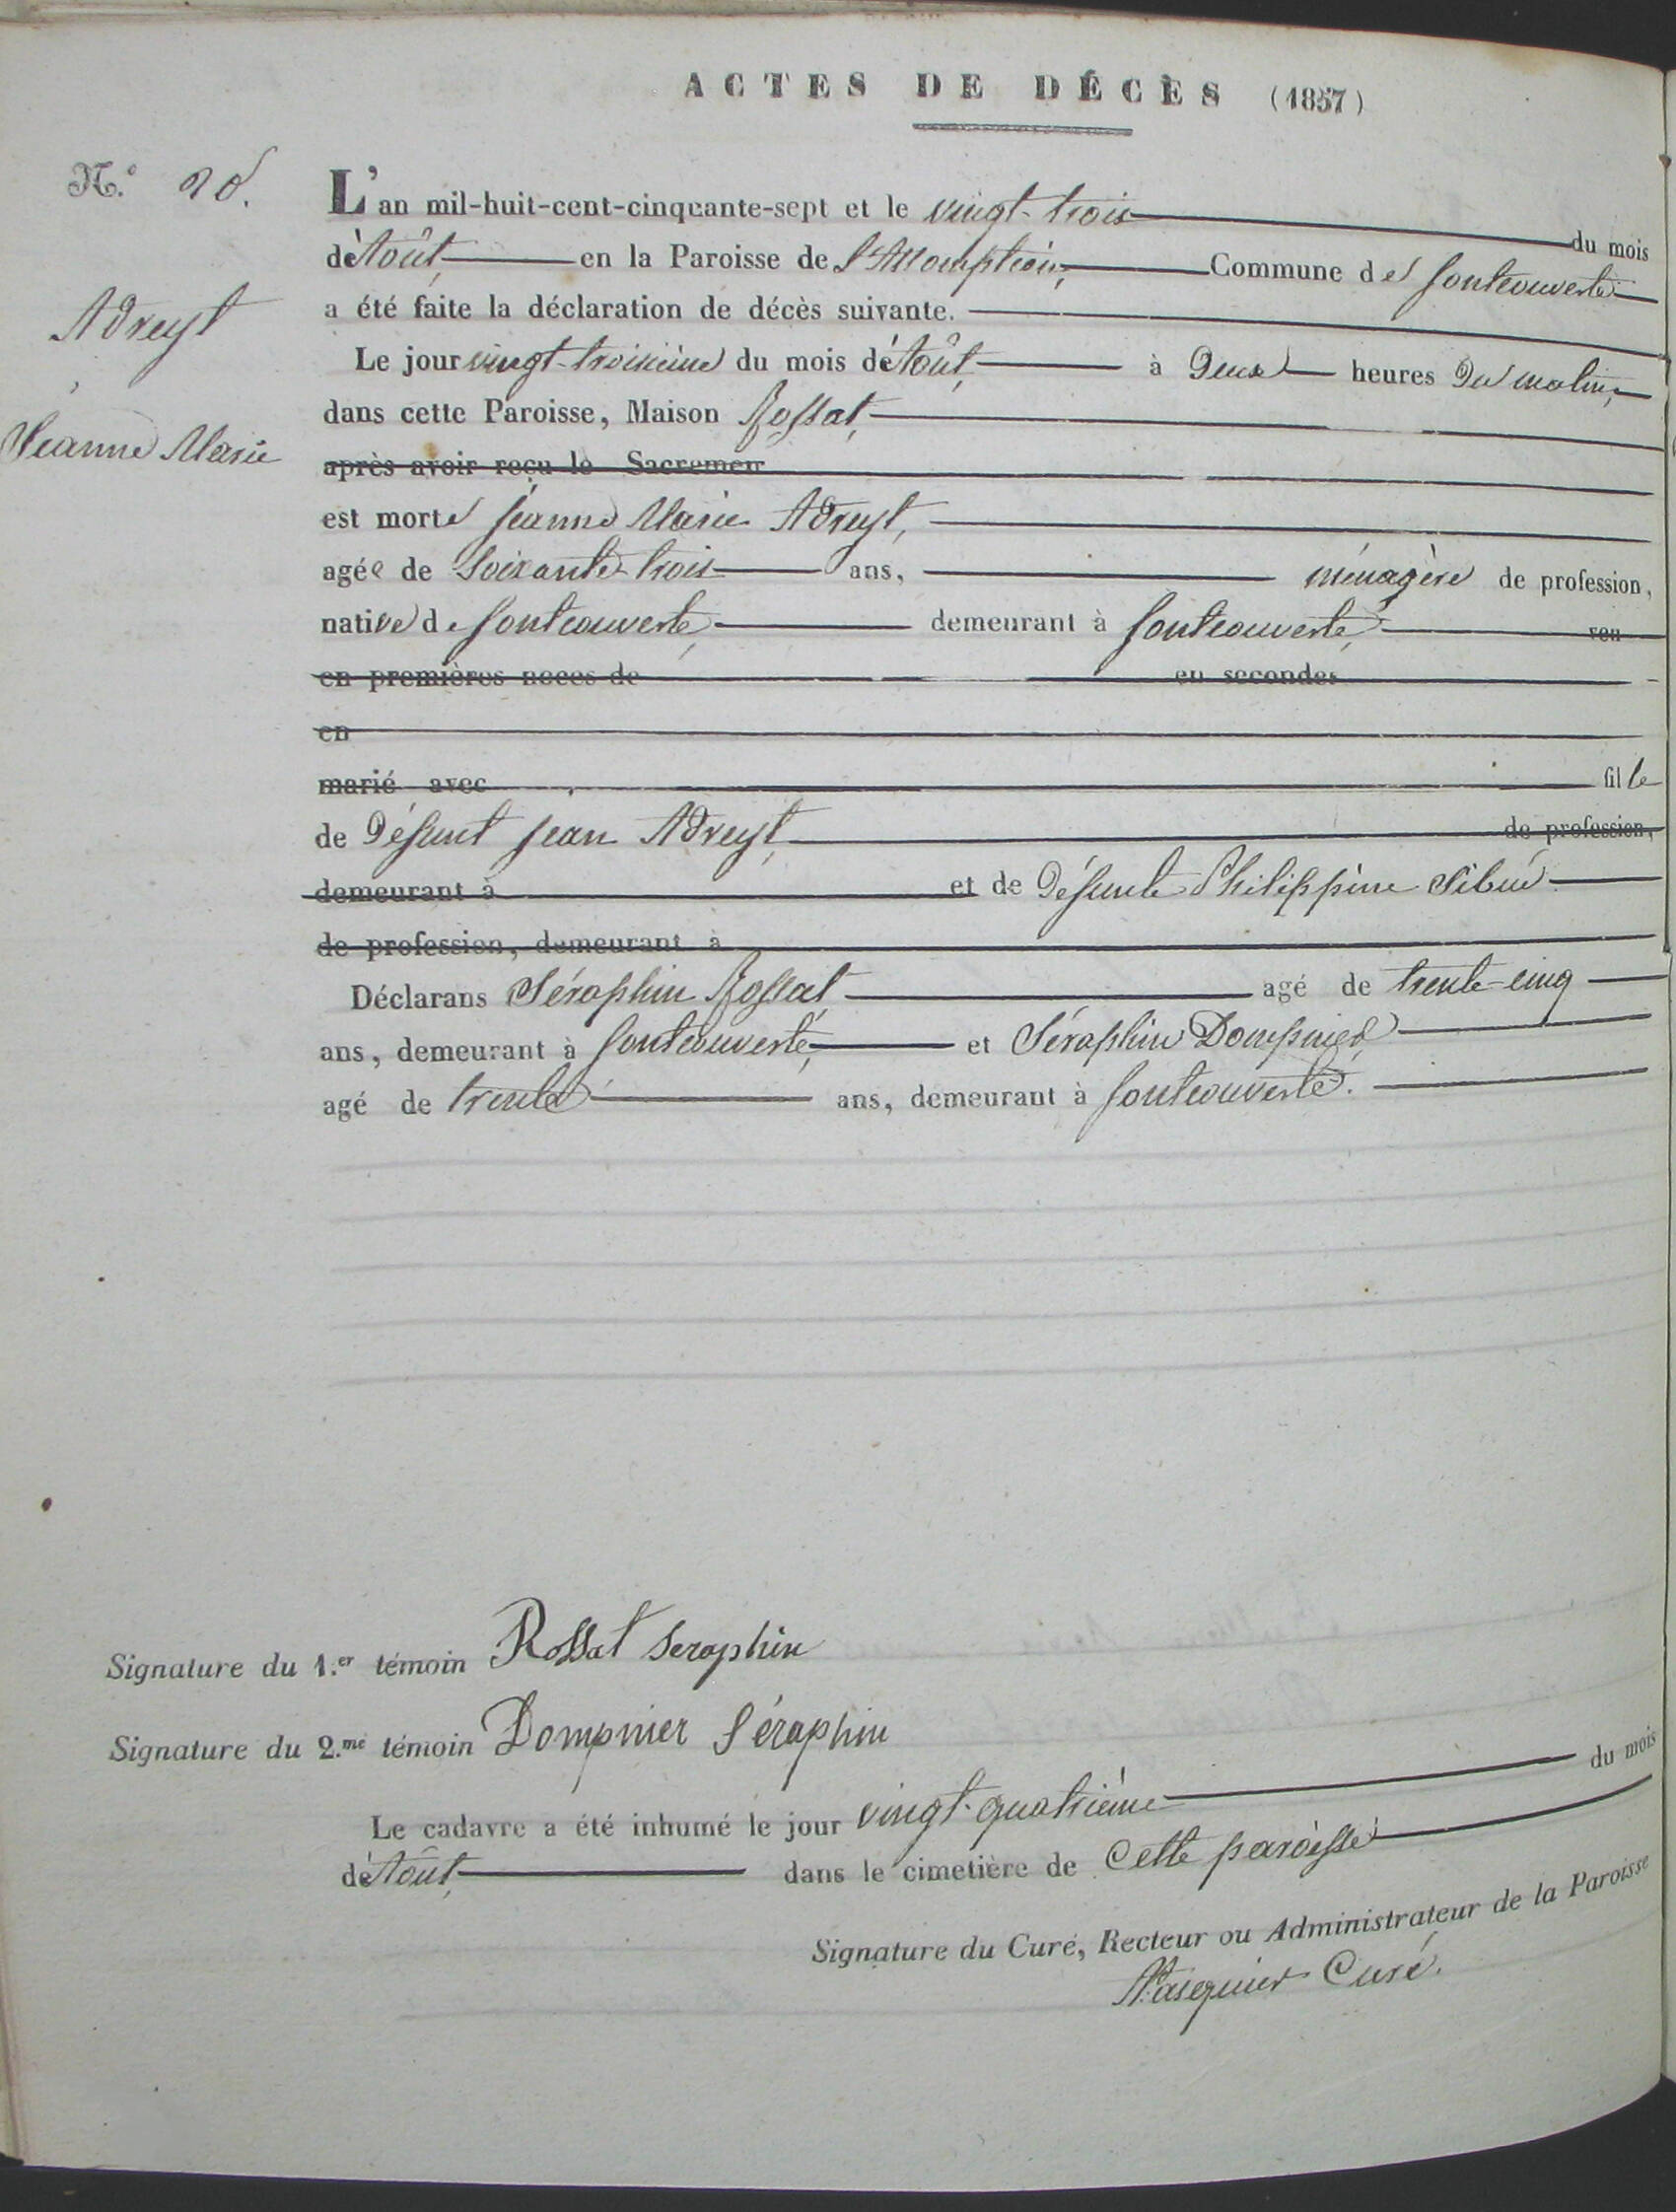 ACTES DE DÉCÈS (1857)
N.°
L'an mil-huit-cent-cinquante-sept et le vingt-trois du mois
d'Août, en la Paroisse de l'Assomption, Commune de Fontcouverte
Adreyt
a été faite la déclaration de décès suivante.
Le jour vingt-troisième du mois d'Août, à Deux heures Du matin,
dans cette Paroisse, Maison Rossat,
Jeanne Marie
après avoir reçu le Sacremen
est morte Jeanne Marie Adreyt,
agée de Soixante-trois ans, ménagère de profession,
native de Fontcouverte, demeurant à Fontcouverte, veu
en premières noces de en secondes
en
marié avec fille
de Défunt Jean Adreyt, de profession,
demeurant à et de Défunte Philippine Sibué
de profession, demeurant à
Déclarans Séraphin Rossat agé de trente-cinq
ans, demeurant à Fontcouverte, et Séraphin Dompnier
agé de trente ans, demeurant à Fontcouverte.
Signature du 1.er témoin Rossat Seraphin
Signature du 2.me témoin Dompnier Séraphin
Le cadavre a été inhumé le jour vingt-quatrième du mois
d'Août, dans le cimetière de Cette paroisse
Signature du Curé, Recteur ou Administrateur de la Paroisse
Pasquier Curé.